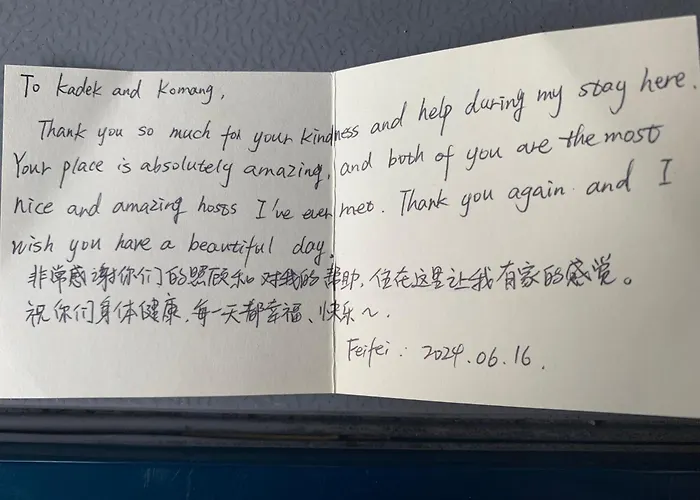 To Kadek and Komang,
Thank you so much for your kindness and help during my stay here.
Your place is absolutely amazing, and both of you are the most
nice and amazing hosts I've ever met. Thank you again and I
wish you have a beautiful day.
非常感谢你们的照顾和对我的帮助，住在这里让我有家的感觉。
祝你们身体健康，每一天都幸福、快乐～.
Feifei. 2024.06.16.